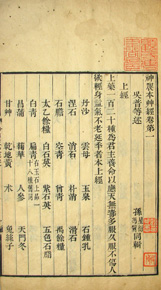 神農本草經卷第一
吳普等述
孫
同輯
上經
上藥一百二十種爲君主養命以應天無毒多服久服不傷人
欲輕身益氣不老延年者本上經
丹沙 雲母 玉泉 石鍾乳
涅石 消石 朴消 滑石
石膽 空青 曾青 禹餘糧
太乙餘糧 白石英 紫石英 五色石脂
白青 扁青
菖蒲 鞠華 人參 天門冬
甘草 乾地黃 朮 兔絲子